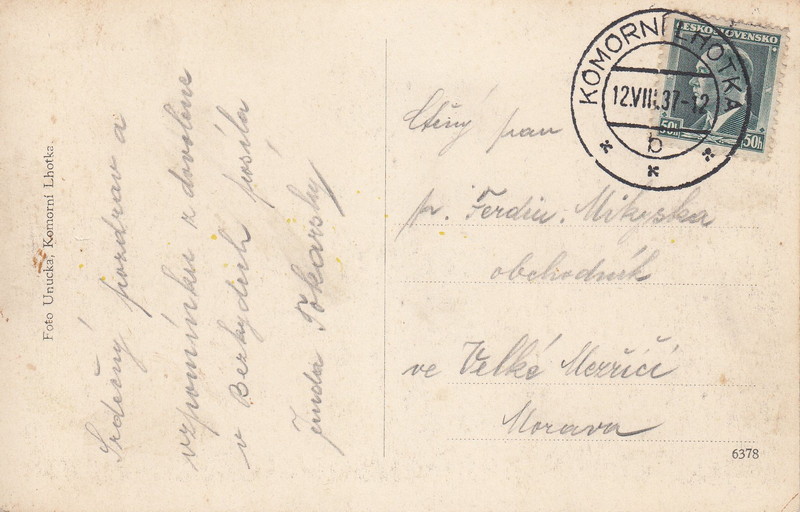 Foto Unucka, Komorní Lhotka.
Srdečný pozdrav a
vzpomínku z dovolene
v Bezkydech posílá
Jenda Tokarský
KOMORNÍ LHOTKA
12.VIII.37-12
b
ČESKOSLOVENSKO
50h 50h
Ctěný pan
p. Ferdin. Mikyska
obchodník
ve Velké Mezřičí
Morava
6378